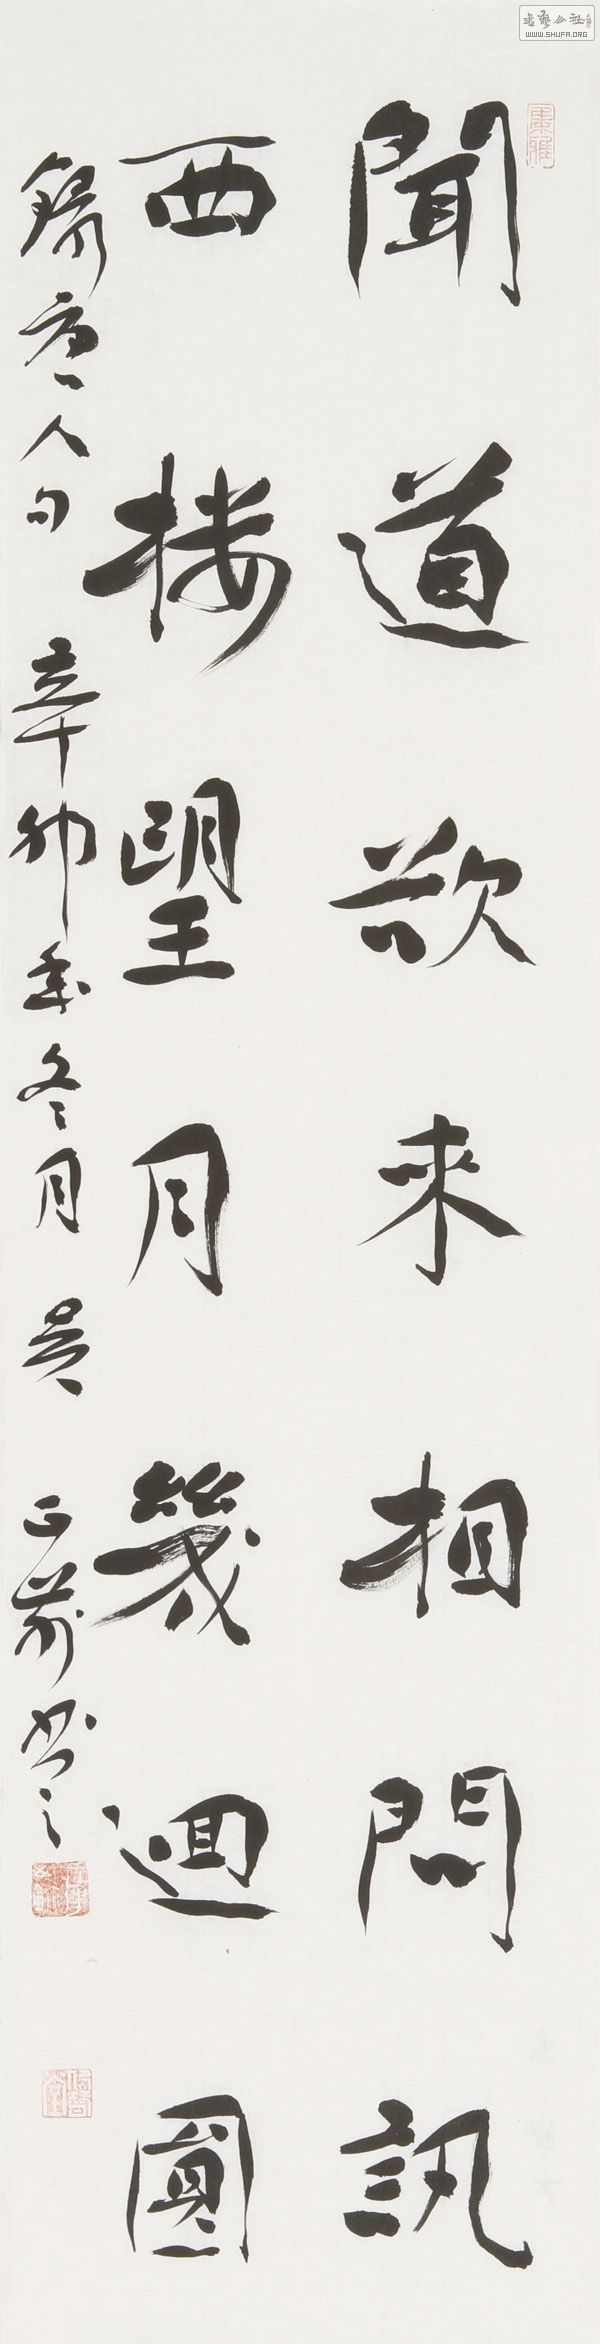 聞道欲来相問訊
西楼望月幾迴圓
錄唐人句 辛卯年冬月 吴正前書之
書藝公社
WWW.SHUFA.ORG